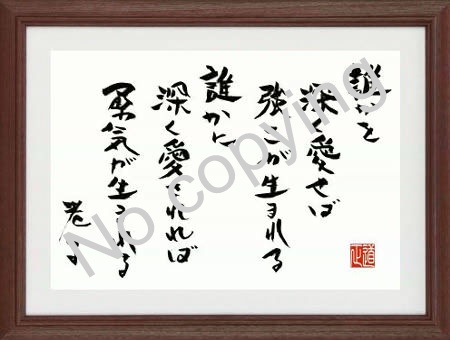 誰かを
深く愛せば
強さが生まれる
誰かに
深く愛されれば
勇気が生まれる
老子
正道
No copying